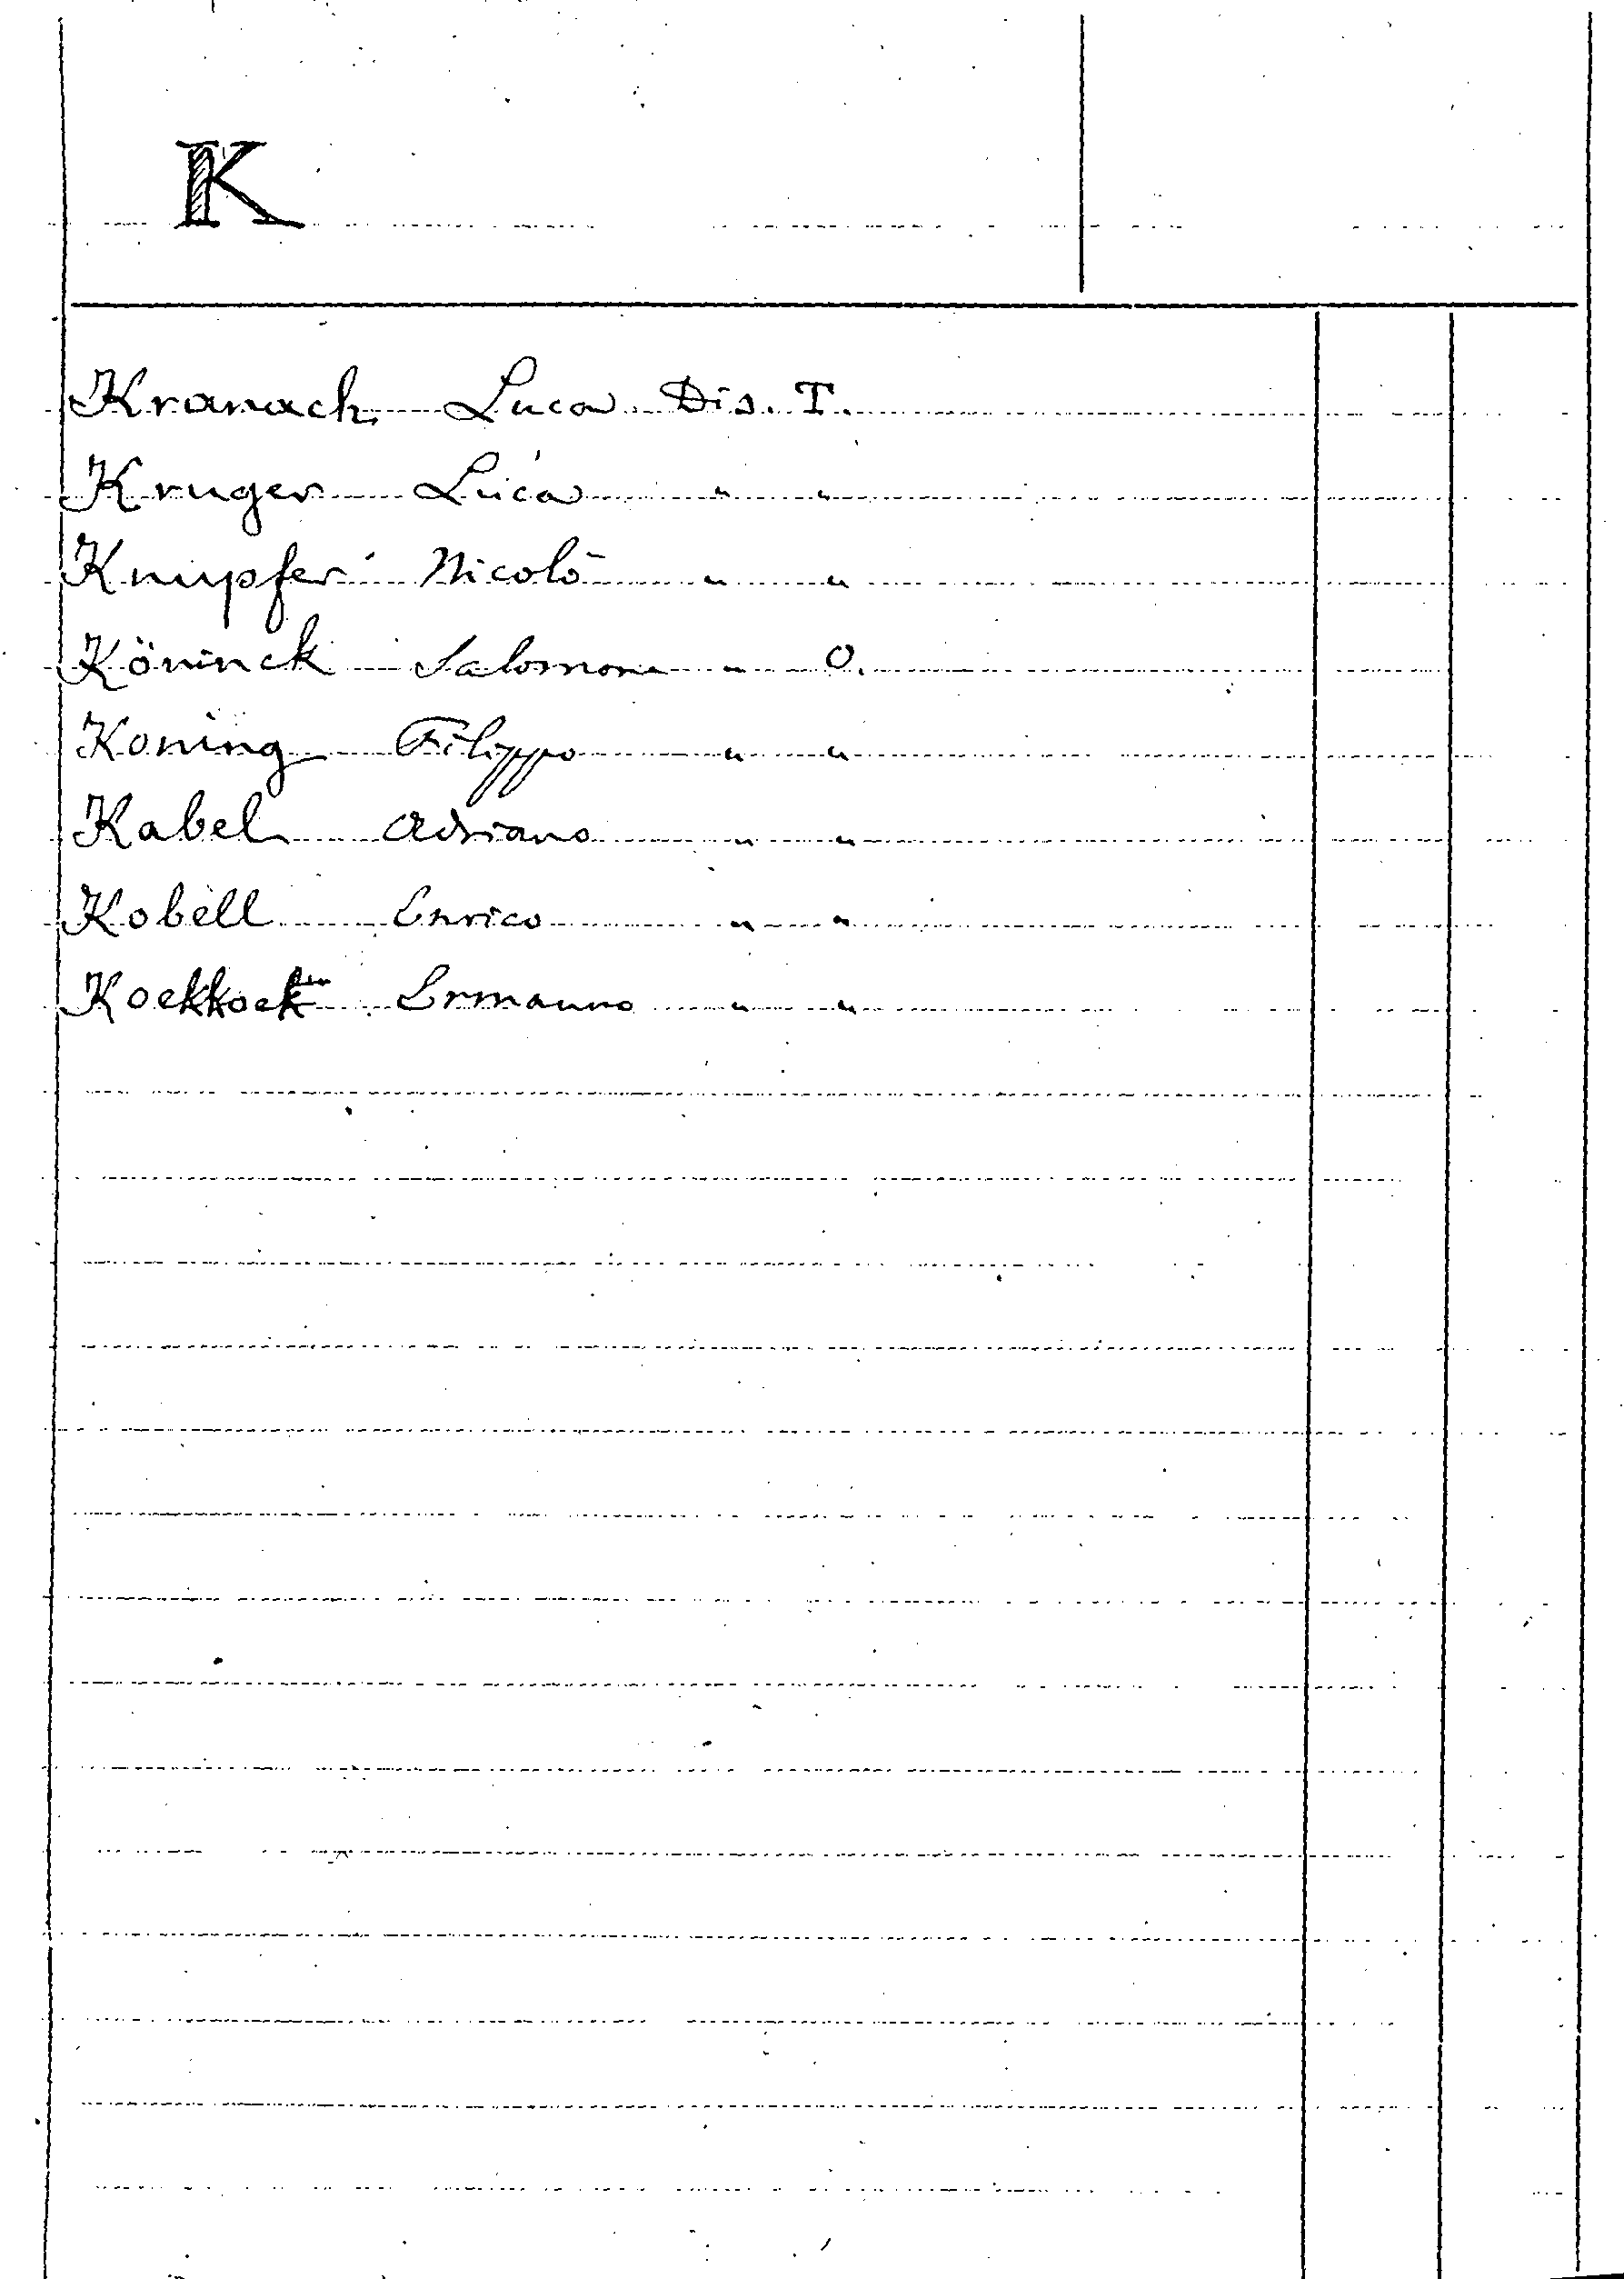 K
Kranach Luca Dis. T.
Kruger Luca " "
Knupfer Nicolò " "
Köninck Salomon " O.
Koning Filippo " "
Kabel Adriano " "
Kobell Enrico " "
Koekkoek Ermanno " "